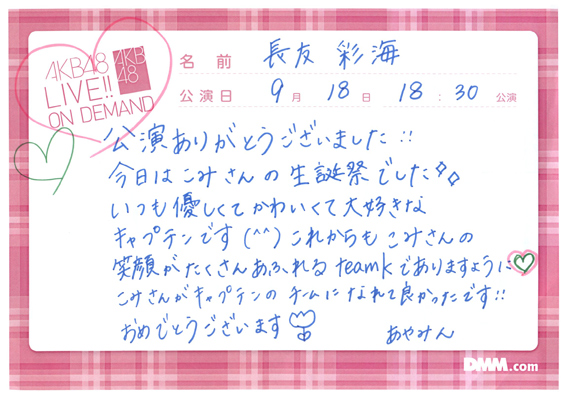 AKB48
LIVE!!
ON DEMAND
AKB
48
名前 長友 彩海
公演日 9月 18日 18:30 公演
公演ありがとうございました!!
今日はこみさんの生誕祭でした
いつも優しくてかわいくて大好きな
キャプテンです(^^)これからもこみさんの
笑顔がたくさんあふれるteamkでありますように
こみさんがキャプテンのチームになれて良かったです!!
おめでとうございます
あやみん
DMM.com